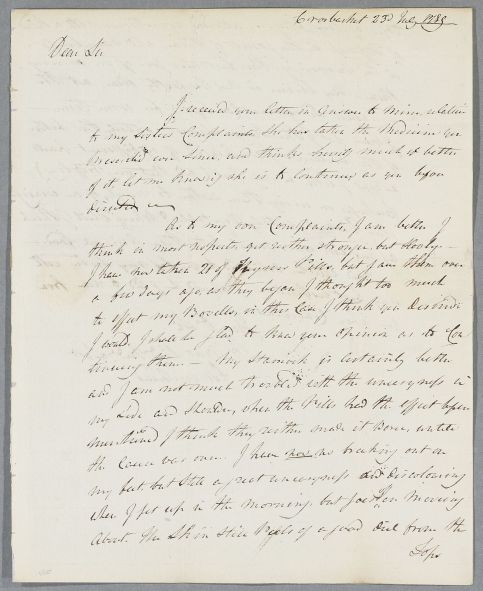 Crossbasket 23d July 1789
Dear Sir
I received your letter in answer to mine, relative
to my Sisters Complaints, She has taken the Medicine you
prescribed ever since, and thinks herself much the better
of it let me know if she is to continue as you before
directed
As to my own Complaints, I am better I
think in most respects, yet rather stronger, but slowly
I have now taken 28 of your Pills, but gave them over
a few days ago, as they began I thought too much
to effect my Bowells, in this Case I think you desired
I would, I shall be glad to know your opinion as to Con
tinuing them — My Stomach is certainly better
and I am not much troubled with the uneasyness in
my Side and Shoulder, when the Pills had the effect before
mentioned I think they rather made it worse, untill
the Cause was over. I have now no breaking out on
my feet, but still a great uneasyness and discolouring
when I get up in the morning, but goes off on moving
about. The Skin still Peels of a good deal from the
Tops